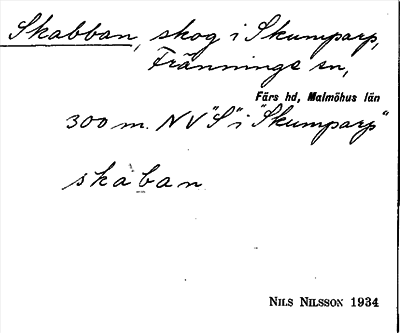 Skabban, skog i Skumparp,
Fränninge sn,
Färs hd, Malmöhus län
300 m. NV "S" i "Skumparp"
skaban
NILS NILSSON 1934